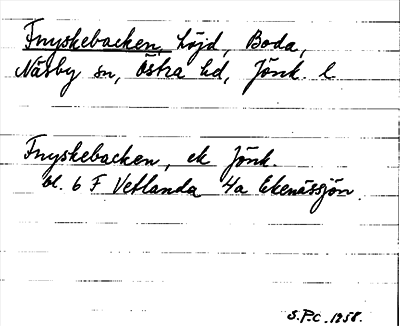 Fnyskebacken, höjd, Boda,
Näsby sn, Östra hd, Jönk. l.
Fnyskebacken, ek Jönk.
bl. 6 F Vetlanda 4a Ekenässjön.
S.P-C. 1958.